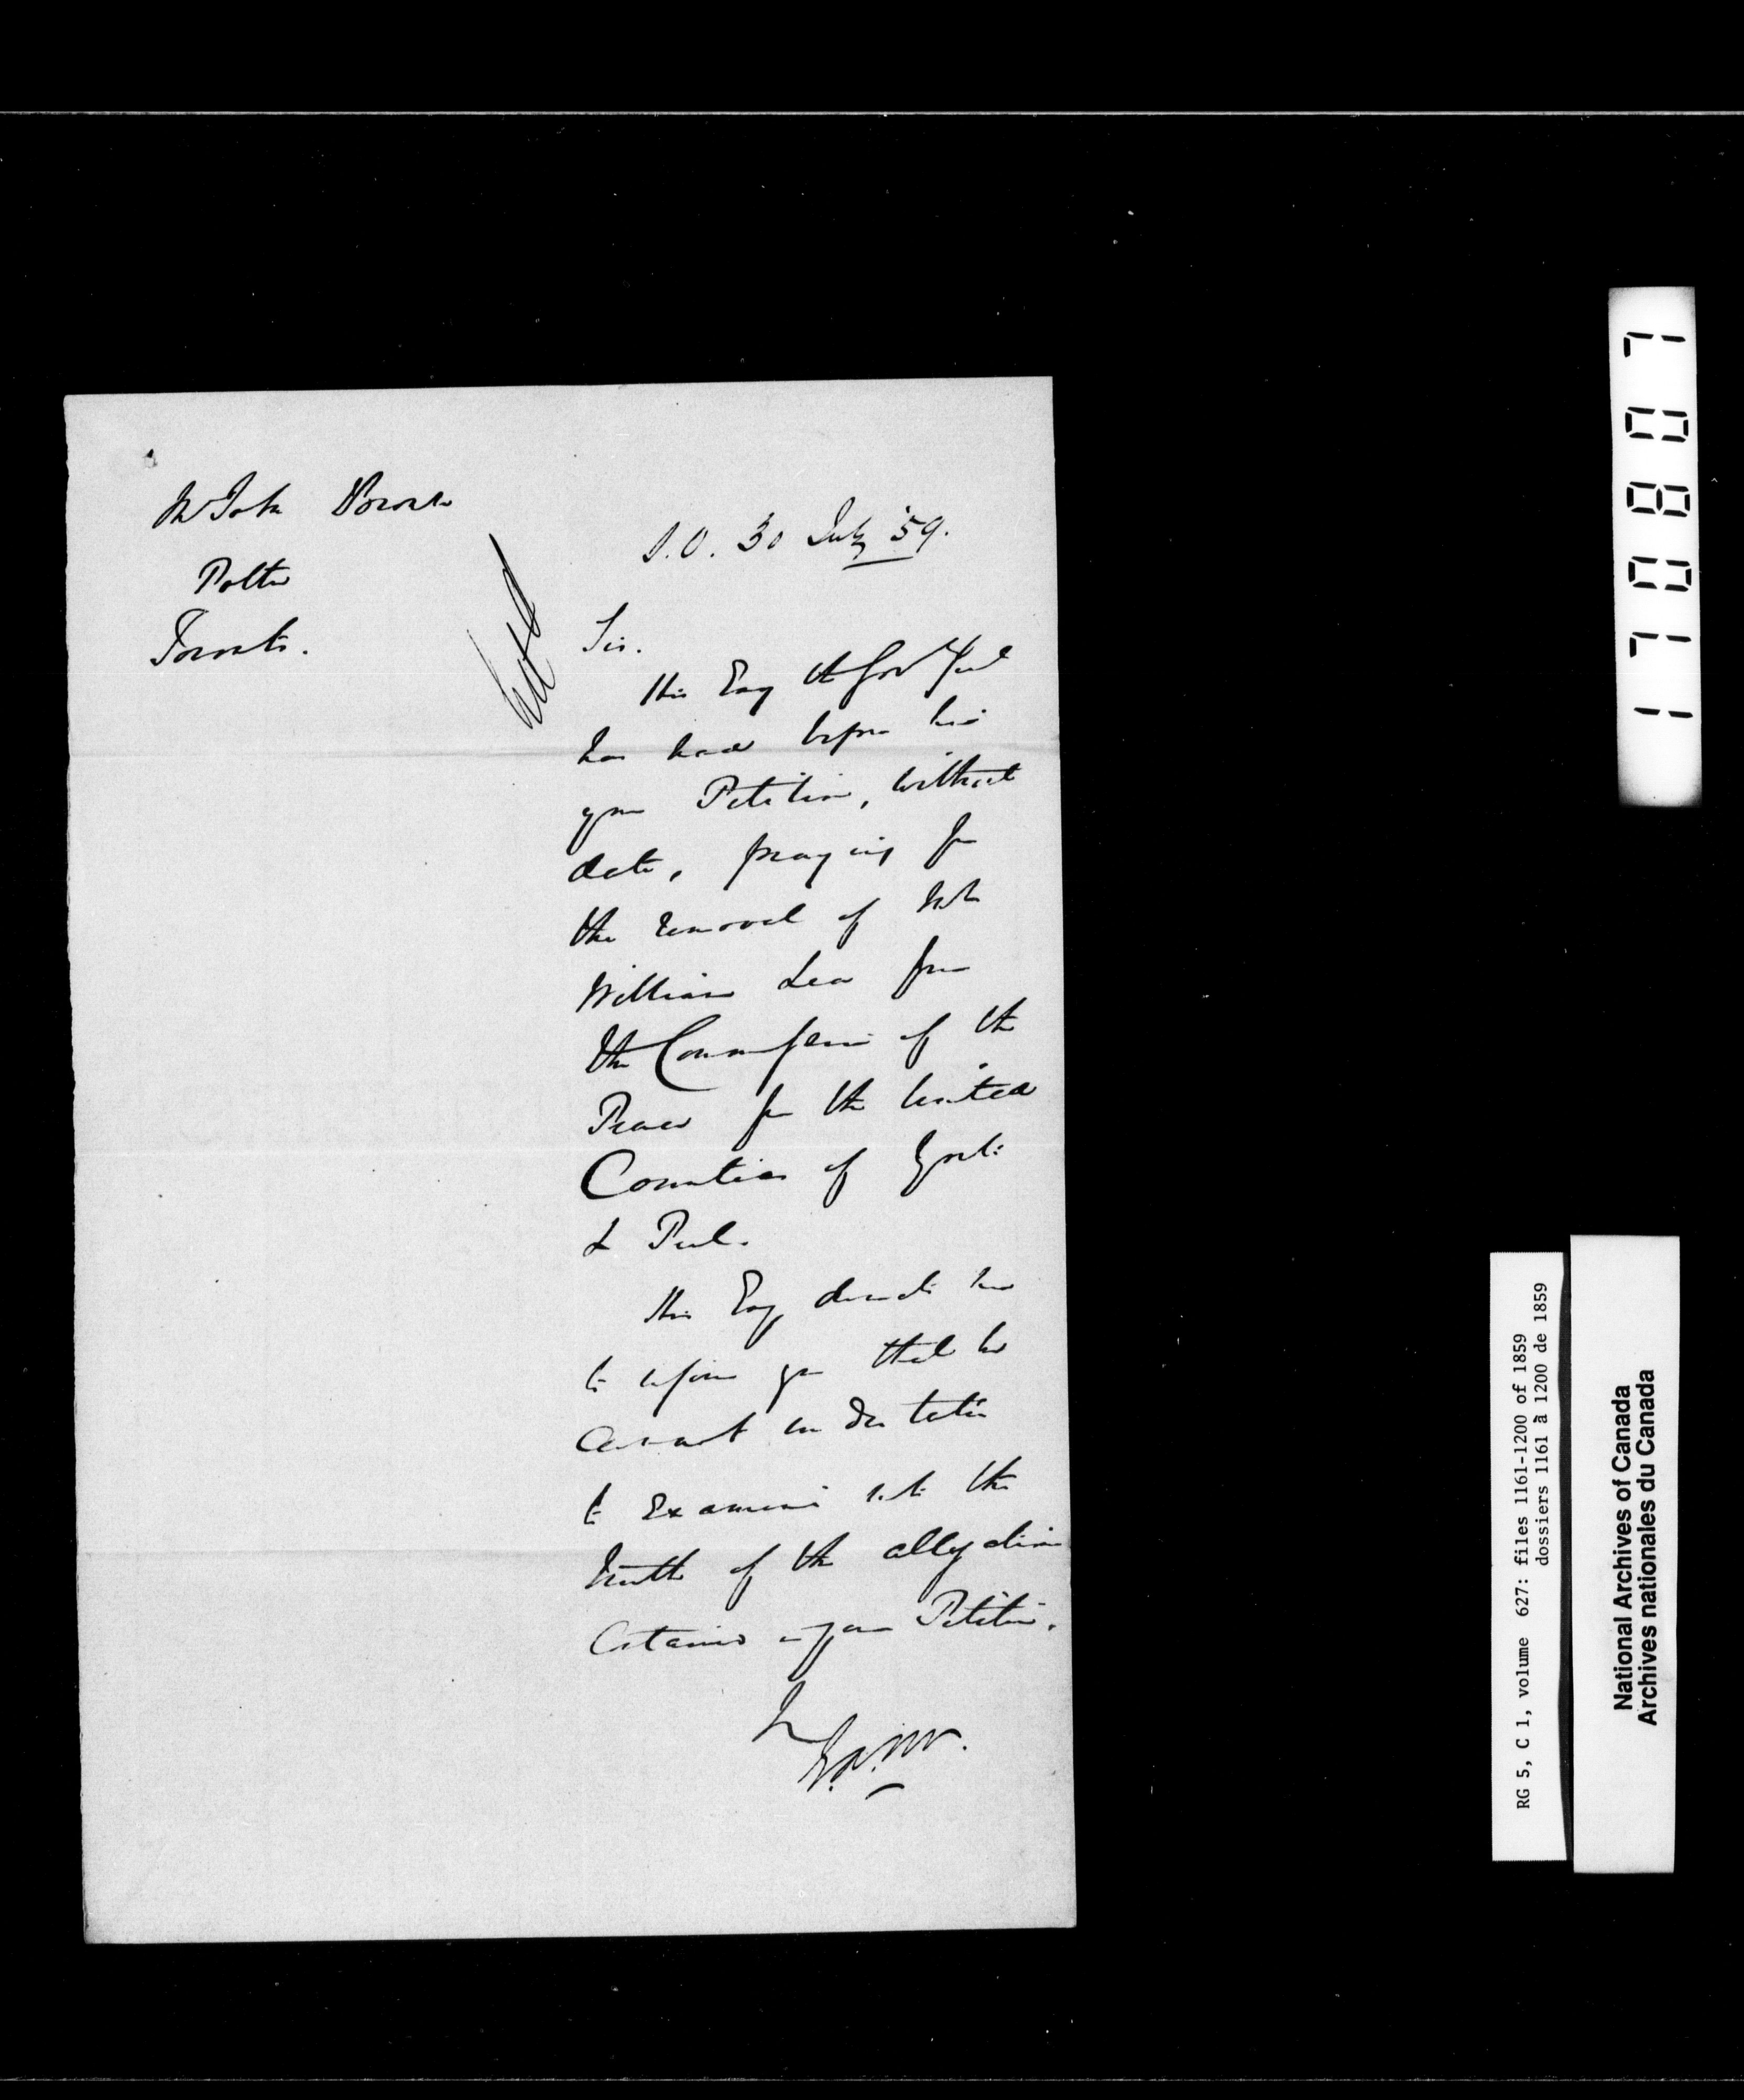 Mr John Brown
Potter
Toronto.
S.O. 30 July '59.
Sir.
His Exy the Gov Genl
has had before him
your Petition, without
date, praying for
the removal of Mr
William Lea from
the Commission of the
Peace for the United
Counties of York
& Peel.
His Exy directs me
to inform you that he
cannot undertake
to examine into the
truth of the allegations
contained in your Petition.
170807
RG 5, C 1, volume 627: files 1161-1200 of 1859
dossiers 1161 à 1200 de 1859
National Archives of Canada
Archives nationales du Canada